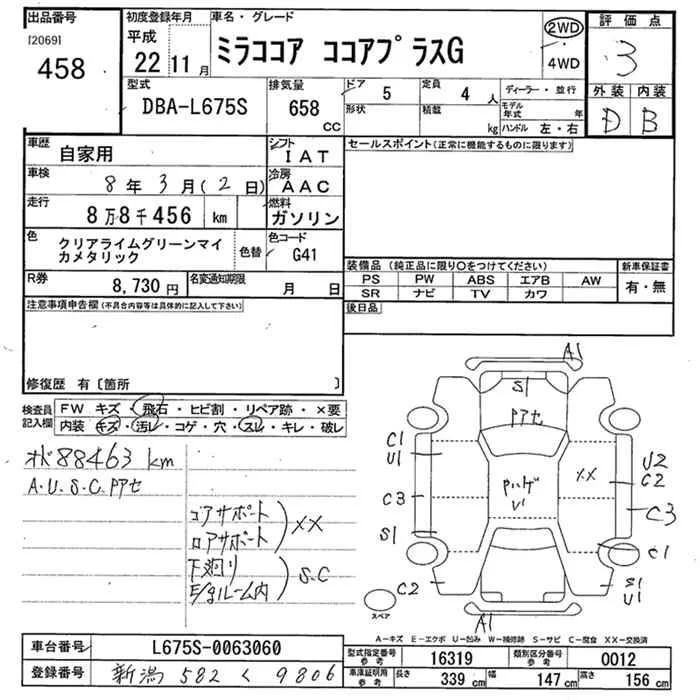 出品番号
[2069]
458
初度登録年月
平成
22 11 月
車名・グレード
ミラココア ココアプラスG
2WD
4WD
評価点
3
外装 内装
D B
型式
DBA-L675S
排気量
658
CC
ドア
5
定員
4 人
形状
積載
kg
ディーラー・並行
モデル年式 年
ハンドル 左・右
車歴
自家用
シフト
IAT
セールスポイント(正常に機能するものに限ります)
車検
8 年 3 月 (2 日)
冷房
AAC
走行
8万8千456 km
燃料
ガソリン
色
クリアライムグリーンマイカメタリック
色替
色コード
G41
R券
8,730 円
名変通知期限
月 日
装備品 (純正品に限り○をつけてください)
新車保証書
PS PW ABS エアB AW
SR ナビ TV カワ
有・無
後日品
注意事項申告欄(不具合内容等は具体的に記入して下さい)
修復歴 有〔箇所 〕
検査員記入欄
FW キズ・飛石・ヒビ割・リペア跡・×要
内装 キズ・汚レ・コゲ・穴・スレ・キレ・破レ
88463 km
A.U.S.C.Pアセ
コアサポート
ロアサポート
XX
下廻り
E/gルーム内
S.C
A1
S1
Pアセ
C1
U1
XX
U2
C2
Pハゲ
U1
C3
C3
S1
C1
C2
S1
U1
スペア
A1
A―キズ E―エクボ U―凹み W―補修跡 S―サビ C―腐食 XX―交換済
車台番号
L675S-0063060
型式指定番号
参考
16319
類別区分番号
参考
0012
登録番号
新潟 582 く 9806
車庫証明用
参考
長さ 339 cm
幅 147 cm
高さ 156 cm